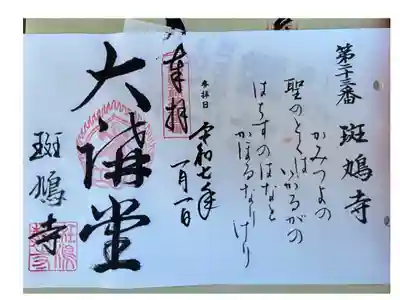 第二十三番 斑鳩寺
かみつよの
聖のとくはいかるがの
はちすのはなと
かほるなりけり
参拝日
令和七年
一月一日
奉拝
大講堂
斑鳩寺